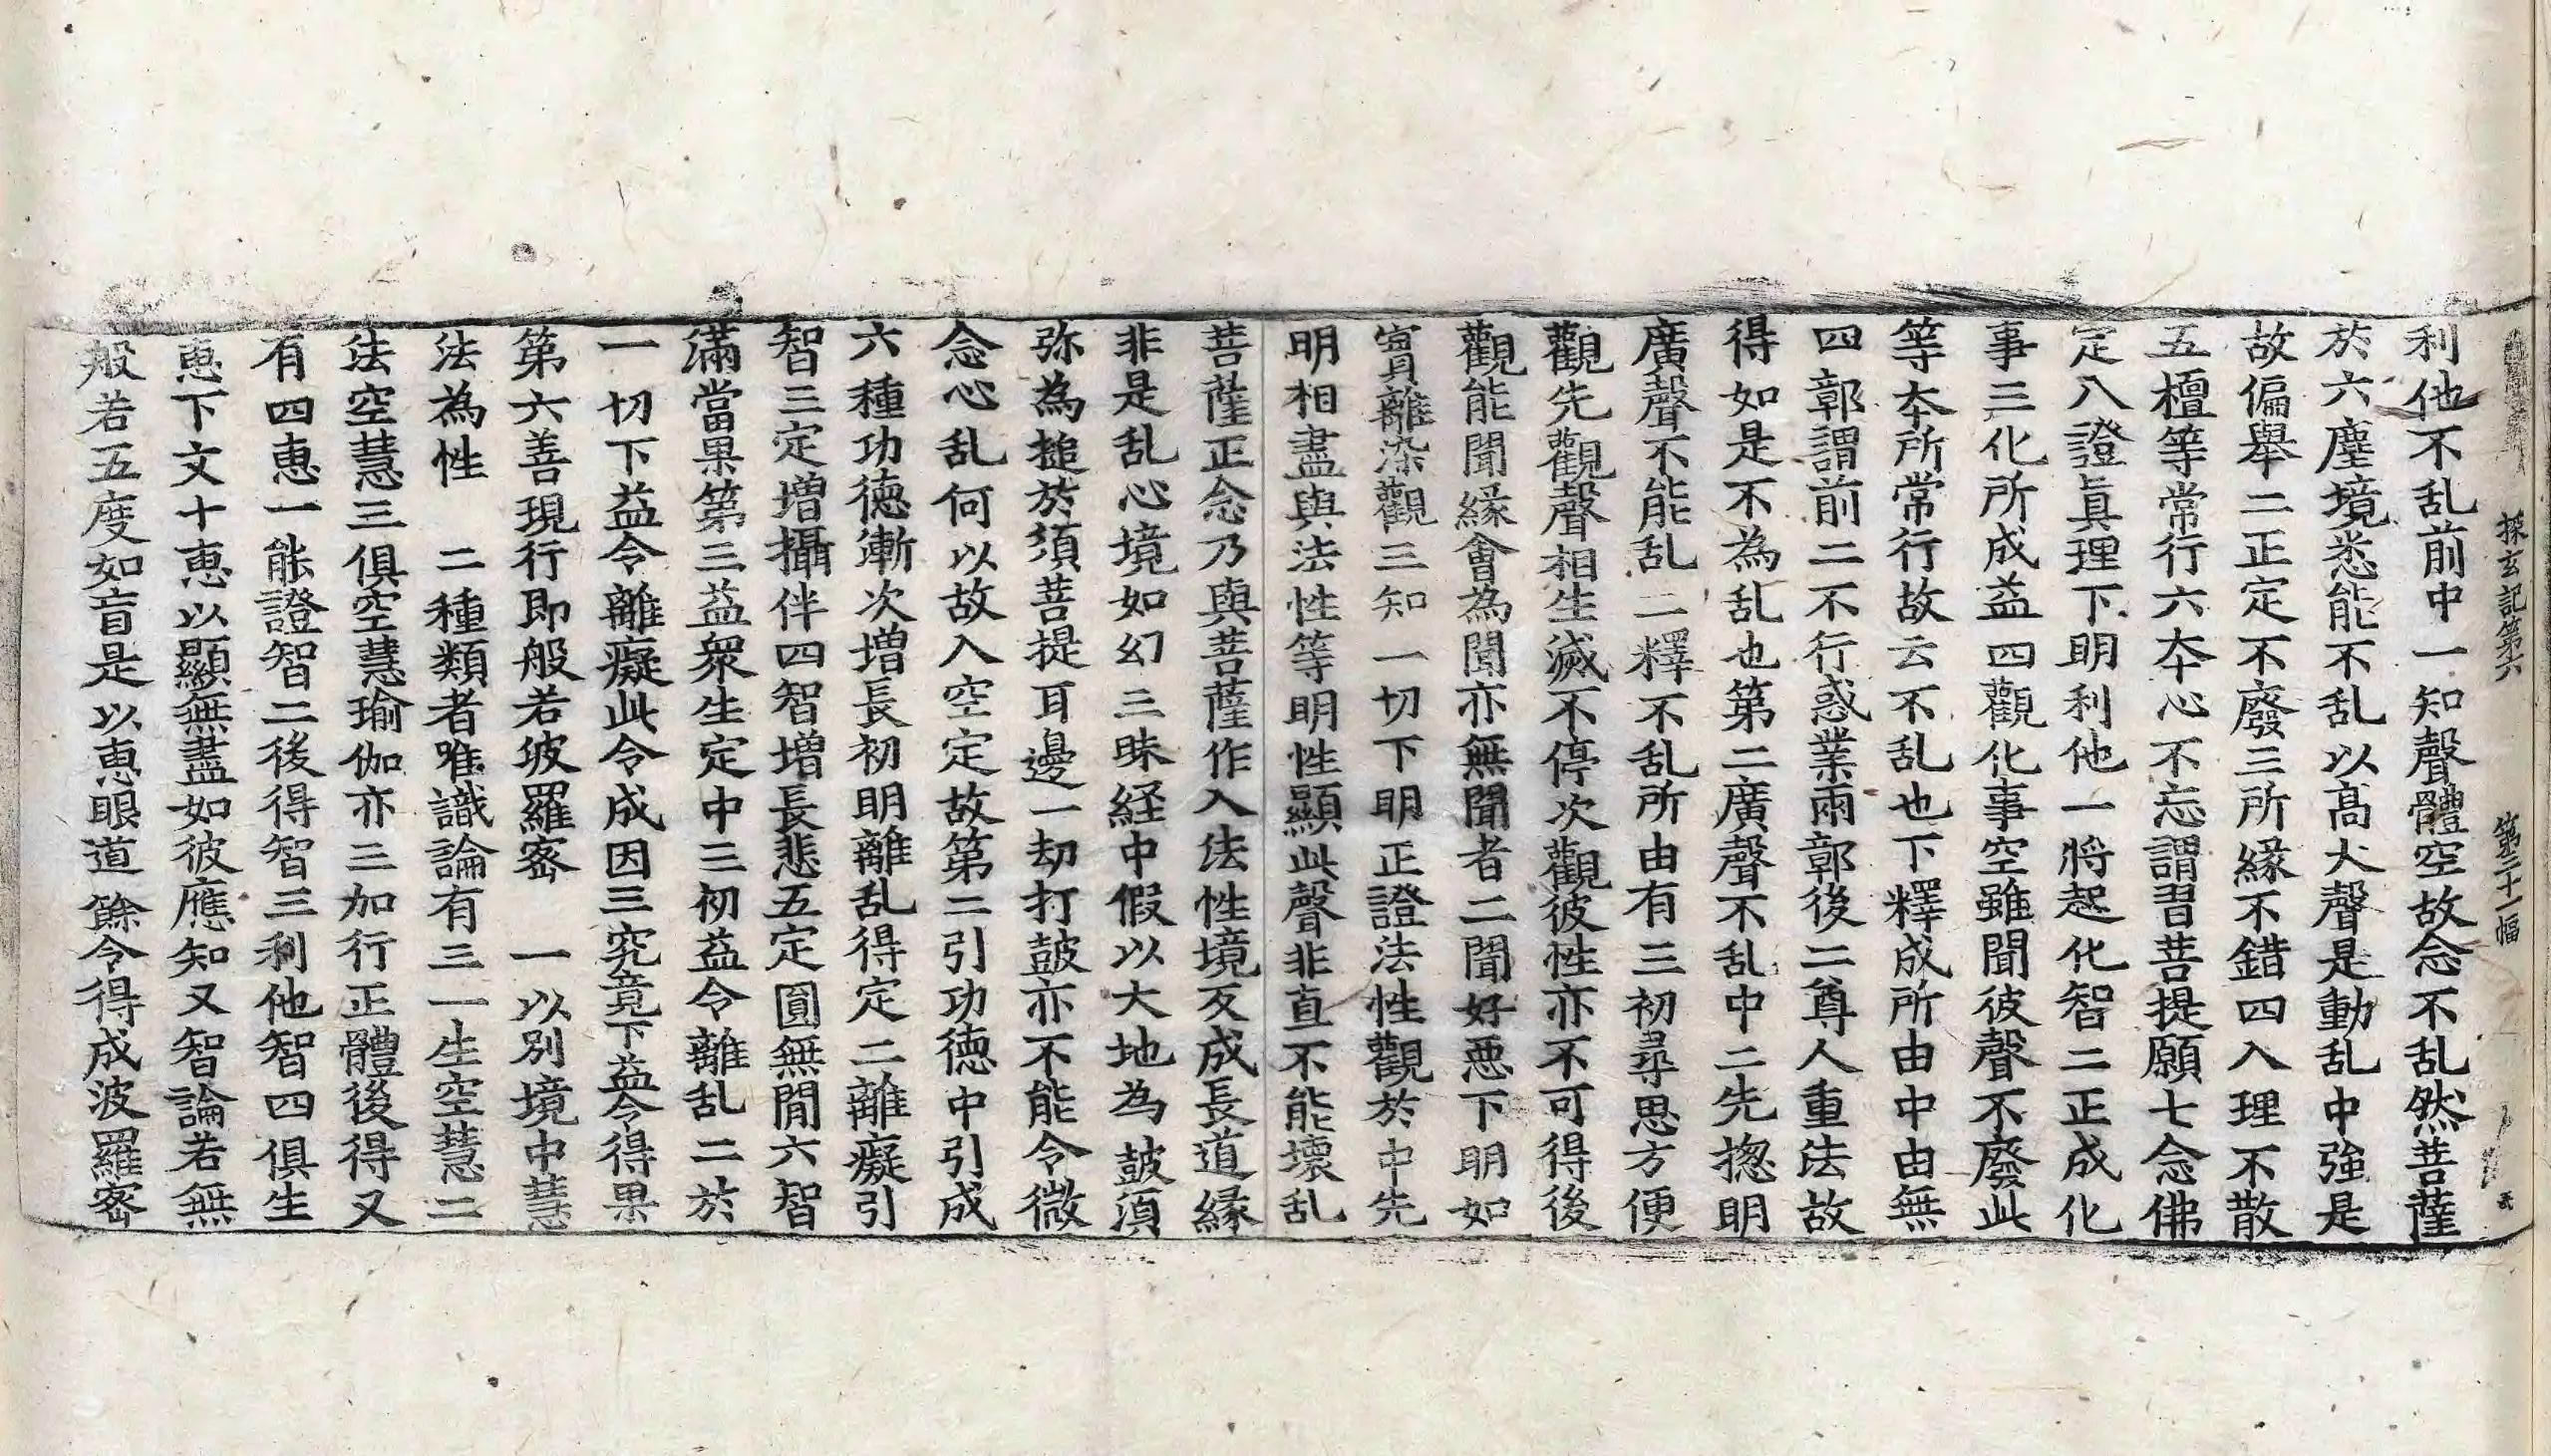 探玄記第六 第三十一幅
利他不乱前中一知聲體空故念不乱然菩薩
於六塵境悉能不乱以高大聲是動乱中強是
故偏舉二正定不廢三所緣不錯四入理不散
五檀等常行六夲心不忘謂習菩提願七念佛
定八證眞理下明利他一將起化智二正成化
事三化所成益四觀化事空雖聞彼聲不廢此
等夲所常行故云不乱也下釋成所由中由無
四鄣謂前二不行惑業兩鄣後二尊人重法故
得如是不為乱也第二廣聲不乱中二先揔明
廣聲不能乱二釋不乱所由有三初尋思方便
觀先觀聲相生滅不停次觀彼性亦不可得後
觀能聞緣會為聞亦無聞者二聞好惡下明如
實離染觀三知一切下明正證法性觀於中先
明相盡與法性等明性顯此聲非直不能壞乱
菩薩正念乃與菩薩作入法性境反成長道緣
非是乱心境如幻三昧経中假以大地為皷須
弥為搥於須菩提耳邊一劫打皷亦不能令微
念心乱何以故入空定故第二引功德中引成
六種功德漸次增長初明離乱得定二離癡引
智三定增攝伴四智增長悲五定圓無間六智
滿當果第三益衆生定中三初益令離乱二於
一切下益令離癡此令成因三究竟下益令得果
第六善現行即般若波羅蜜 一以別境中慧
法為性 二種類者唯識論有三一生空慧二
法空慧三俱空慧瑜伽亦三加行正體後得又
有四惠一能證智二後得智三利他智四俱生
惠下文十惠以顯無盡如彼應知又智論若無
般若五度如盲是以惠眼道餘令得成波羅蜜